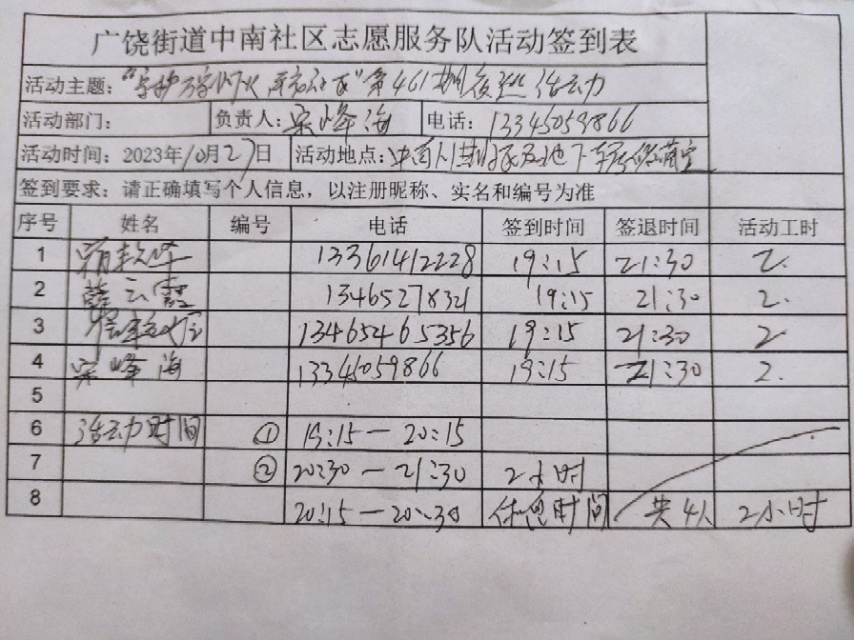 广饶街道中南社区志愿服务队活动签到表
活动主题：第461期 活动
活动部门： 负责人：宋峰海 电话：13345059866
活动时间：2023年10月27日 活动地点：
签到要求：请正确填写个人信息，以注册昵称、实名和编号为准
序号 姓名 编号 电话 签到时间 签退时间 活动工时
1 13361412228 19:15 21:30 2.
2 薛云霞 1346527832 19:15 21:30 2.
3 13465465356 19:15 21:30 2
4 宋峰海 13345059866 19:15 21:30 2.
5
6 活动时间 ① 19:15—20:15
7 ② 20:30—21:30 2小时
8 20:15—20:30 休息时间 共4人 2小时